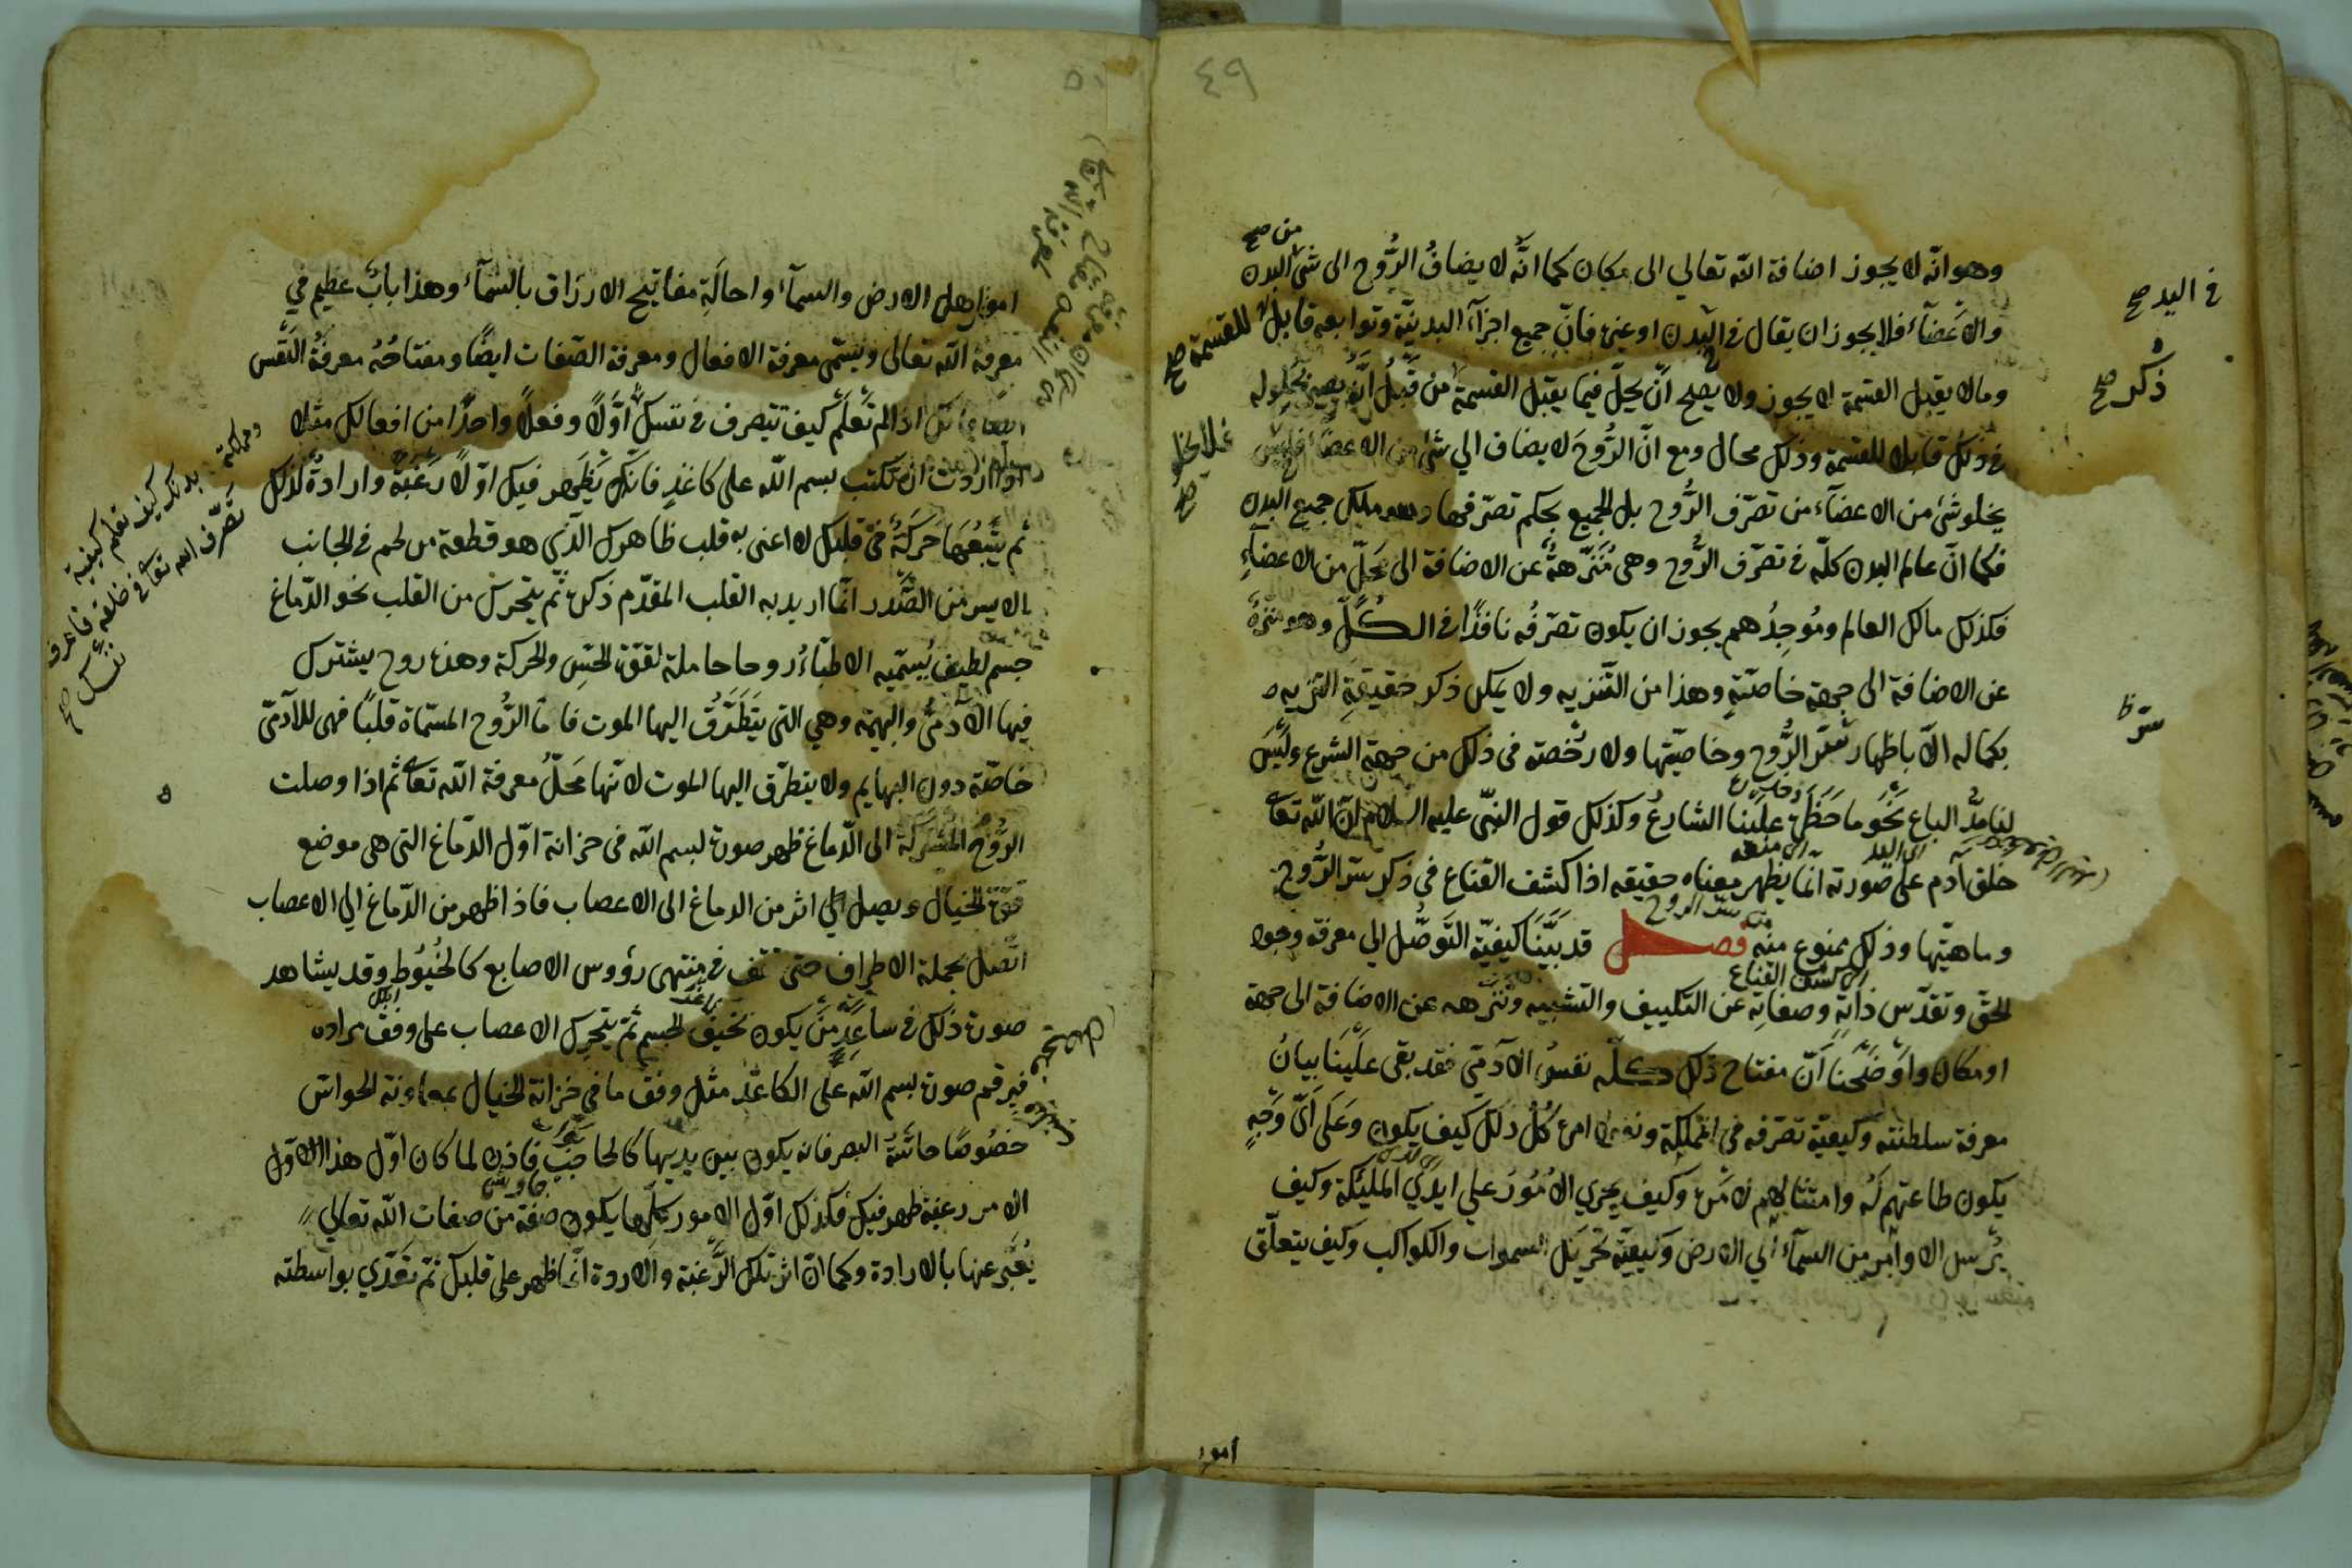 ٤٩
وهو انّه لا يجوز اضافة الله تعالي الى مكان كما انَّه لا يضافُ الرُّوح الى شئ البدن
من صح
والاعضآء فلا يجوز ان يقال في اليد او عينه فانّ جميع اجزآء البدنيّة وتوابعه قابل للقسمة
في اليد صح
وما لا يقبل القسمة لا يجوز ولا يصلح انّ يحلّ فيما يقبل القسمة من قبل انّه يصير بحلوله
ذكر صح
في ذلك قابلا للقسمة وذلك محال ومع انّ الرُّوحَ لا يضاف الي شئ من الاعضا فليس
فلا يخلو صح
يخلو شئ من الاعضآء من تصرّف الرُّوح بل الجميع بحكم تصرّفها وملك جميع البدن
فكما انّ عالم البدن كلّه في تصرّف الرُّوح وهى مُنَزّهةٌ عن الاضافة الى محلّ من الاعضآءِ
فكذلك مالك العالم ومُوجِدُهم يجوز ان يكون تصرّفُه نافذًا في الكُلِّ وهو منزهٌ
عن الاضافة الى جهة خاصّيةٍ وهذا من التّنزيه ولا يمكن ذكر حقيقةِ التنزيه
بكماله الّا باظهار سرّ الرُّوح وخاصيّتها ولا رُخصة فى ذلك من جهة الشرع وليس
سرّ ظ
لنا مدُّ الباع نحو ما حَظَرَ علينا الشارعُ وكذلك قول النبّى عليه السلام انّ الله تعا
خلق آدم على صورته انّما يظهر معناه حقيقه اذا كشف القناع في ذكر سرّ الرُّوح
وماهيّتها وذلك ممنوع منه فصل قد بيَّنَا كيفيّة التَوصُّل الي معرفة وجود
سرّ الروح
اى كشف القناع
الحقّ وتقدّس ذاته وصفاته عن التكييف والتشبيه وتنزهه عن الاضافة الى جهة
او مكان واوَضَحنا اَنّ مفتاح ذلك كلّه نفسُ الآدمّى فقد بقى علَيَنا بيانُ
معرفة سلطنته وكيفيّة تصرّفه في المملكة ونفوذ امره كلُّ ذلك كيف يكون وعَلَى اَىّ وَجهٍ
يكون طاعتهم لهُ وامتثالهم لامره وكيف يجري الامُورُ علي ايدي المليئكة وكيف
يُرسل الاوامر من السمآء الي الارض وكيفيّة تحريك السموات والكواكب وكيف يتعلّق
امور
٥٠
امور اهل الارض والسمآء واحالَةِ مفاتيح الارزاق بالسّمآء وهذا بابٌ عظيم في
معرفة الله تعالى ويسَمّى معرفة الافعال ومعرفة الصّفات ايضًا ومفتاحُهُ معرفةُ النّفس
اذا لم تَعلَم كيف تتصرف في نفسك اوَّلاً وفعلاً واحدًا من افعالك مثلا
اذا اردت ان تكتب بسم الله على كاغذٍ فانّك يَظهر فيك اوّلاً رغبةٌ وارادةٌ لذلك
ثم يتبعُها حَركةٌ في قلبك لا اعنى به قلب ظاهرك الّذي هو قطعة من لحم في الجانب
الايسر من الصّدر انّما اريد به القلب المقدّم ذكره ثّم يتحرّك من القلب نحو الدّماغ
جسم لطيف يُسمّيه الاطبّاءُ روحا حاملة لقوّة الحسِ والحركة وهذه روح يشترك
فيها الآدمىُّ والبهيمة وهي التى يَتَطَرَّقُ اليها الموت فامّا الرُّوح المسمّاة قلبًا فهى للآدمّى
خاصّة دون البهايم ولا يتطرّق اليها الموت لانّها مَحلُّ معرفة الله تعا ثم اذا وصلت
الرُّوحُ المُشتركة الى الدّماغ ظهر صورة لبسم الله فى خزانة اوّل الدّماغ التى هى موضع
قوّة الخيال ويصل اثر من الدماغ الى الاعصاب فاذا ظهر من الدّماغ الي الاعصاب
اتّصل بجملة الاطراف حتى تقف في منتهى رؤوس الاصابع كالخيُوُط وقد يشاهد
صورة ذلك في ساعد من يكون نحيف الجسم ثم يتحرك الاعصاب على وفق مراده
فيرقم صورة بسم الله علَى الكاغذ مثل وفق ما في خزانة الخيال بمعاونة الحواسّ
خصُوصًا حاسّةُ البصر فانه يكون بين يديها كالحاجب فاذن لما كان اوّل هذا الاوّل
الامر رغبة ظهر فيك فكذلك اوّل الامور كلّها يكون صفة من صفات الله تعالي
يُعبَّر عنها بالارادة وكما انّ اثر تلك الرَّغبة والاروة انّما ظهر على قلبك ثمّ تعَدّي بواسطته
بدنك كيف تعلم كيفية
تصّرف الله تعا في خلقه فاعرف
نفسك صح